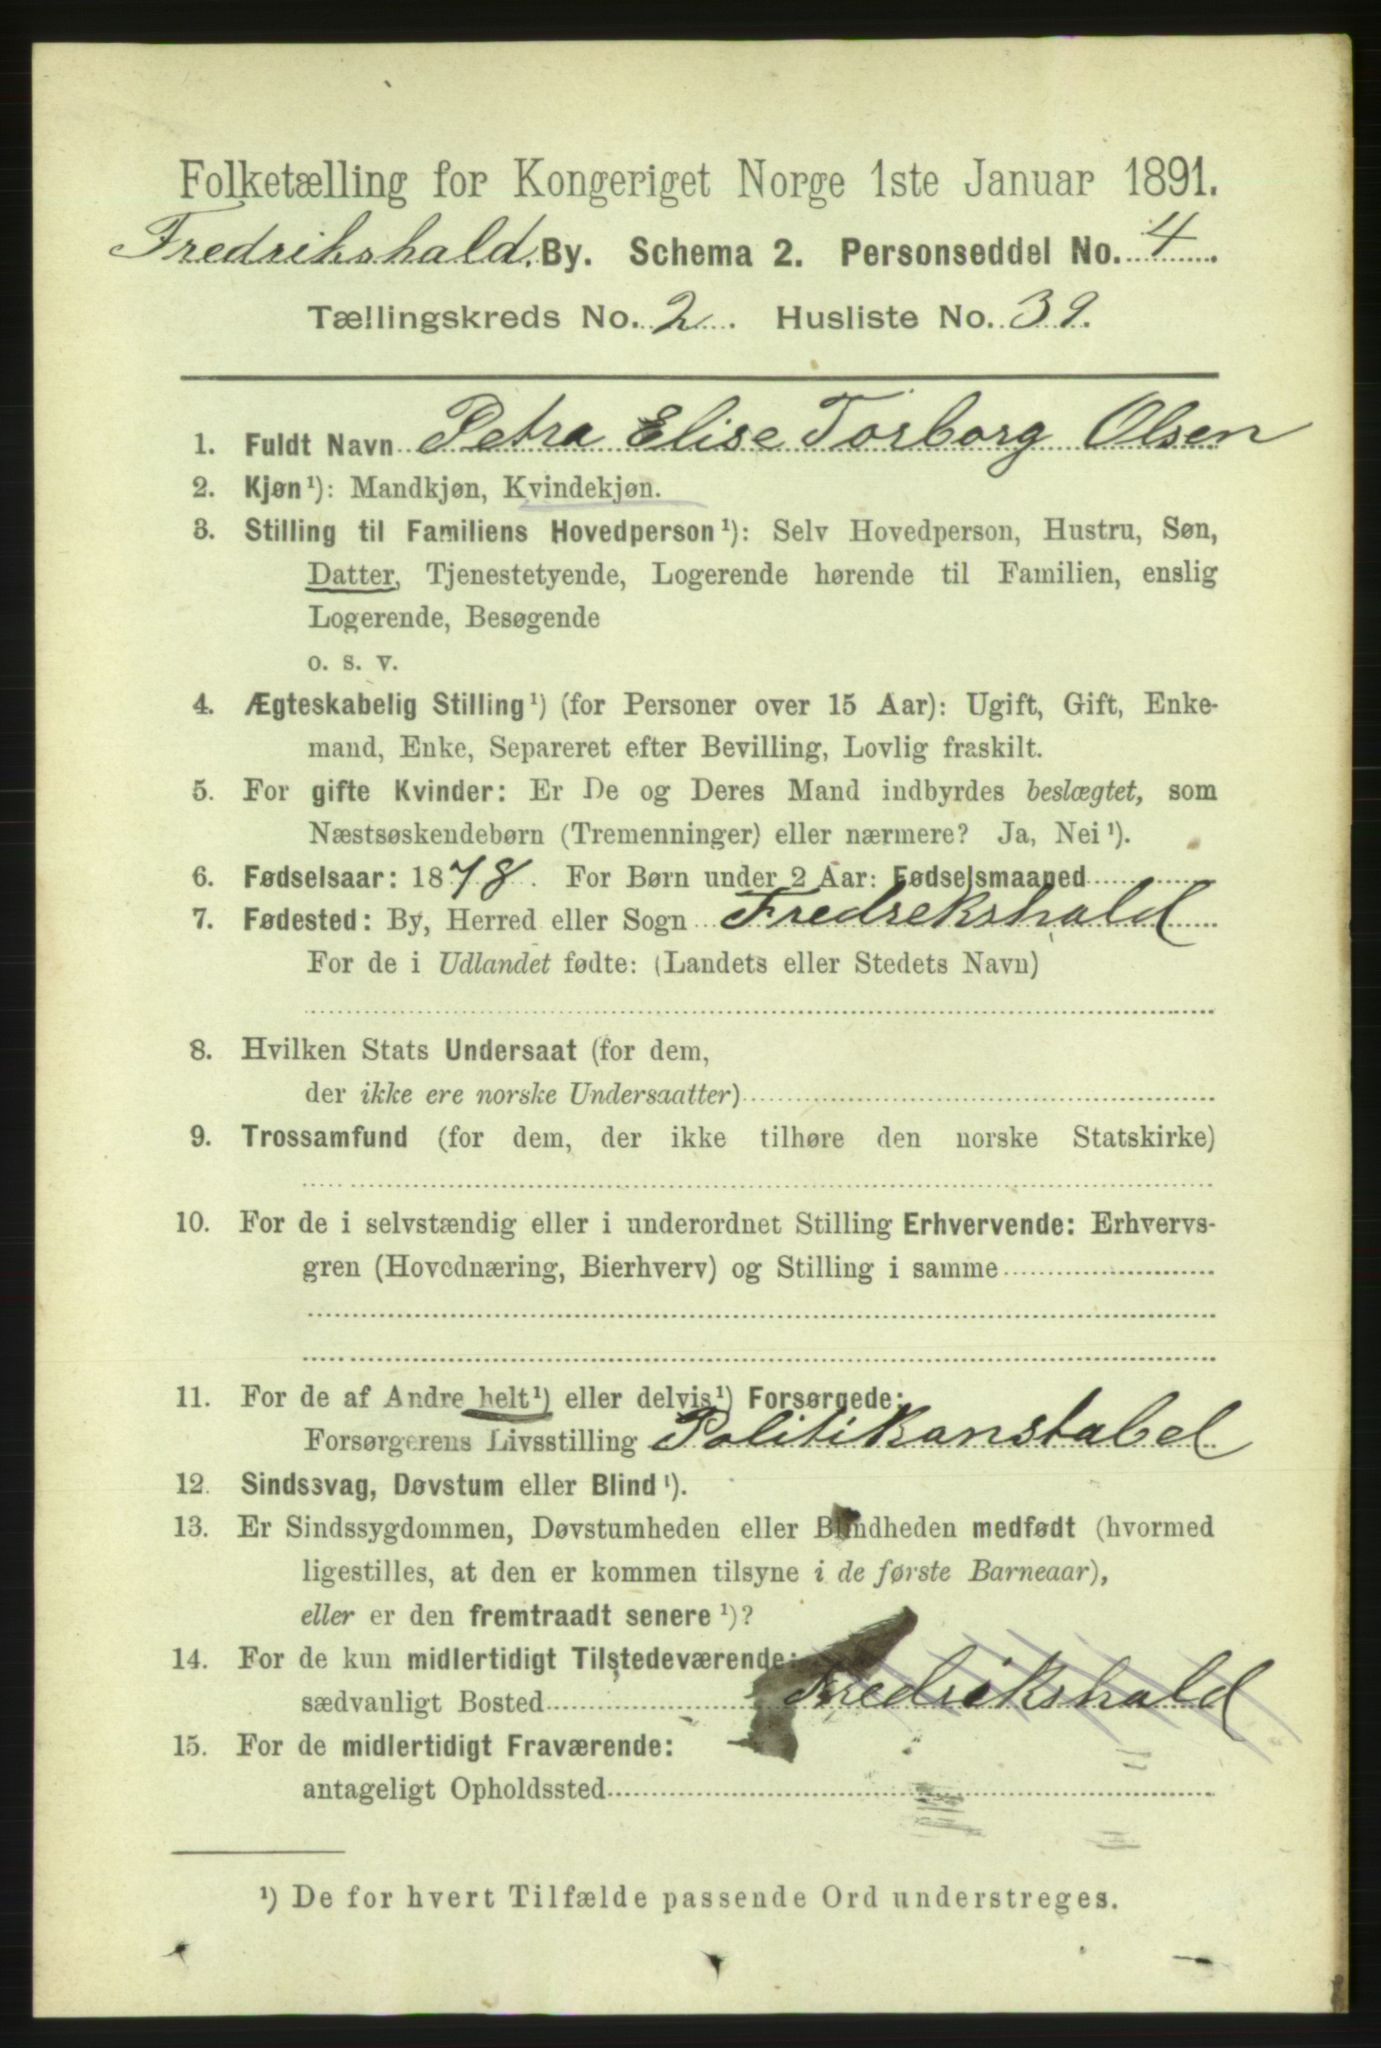 Folketælling for Kongeriget Norge 1ste Januar 1891.
Fredrikshald. By. Schema 2. Personseddel No. 4.
Tællingskreds No. 2. Husliste No. 39.
1. Fuldt Navn Petra Elise Torborg Olsen
2. Kjøn¹): Mandkjøn, Kvindekjøn.
3. Stilling til Familiens Hovedperson¹): Selv Hovedperson, Hustru, Søn,
Datter, Tjenestetyende, Logerende hørende til Familien, enslig
Logerende, Besøgende
o. s. v.
4. Ægteskabelig Stilling¹) (for Personer over 15 Aar): Ugift, Gift, Enke-
mand, Enke, Separeret efter Bevilling, Lovlig fraskilt.
5. For gifte Kvinder: Er De og Deres Mand indbyrdes beslægtet, som
Næstsøskendebørn (Tremenninger) eller nærmere? Ja, Nei¹).
6. Fødselsaar: 1878. For Børn under 2 Aar: Fødselsmaaned
7. Fødested: By, Herred eller Sogn Fredrekshald
For de i Udlandet fødte: (Landets eller Stedets Navn)
8. Hvilken Stats Undersaat (for dem,
der ikke ere norske Undersaatter)
9. Trossamfund (for dem, der ikke tilhøre den norske Statskirke)
10. For de i selvstændig eller i underordnet Stilling Erhvervende: Erhvervs-
gren (Hovednæring, Bierhverv) og Stilling i samme
11. For de af Andre helt¹) eller delvis¹) Forsørgede:
Forsørgerens Livsstilling Politikonstabel
12. Sindssvag, Døvstum eller Blind¹).
13. Er Sindssygdommen, Døvstumheden eller Blindheden medfødt (hvormed
ligestilles, at den er kommen tilsyne i de første Barneaar),
eller er den fremtraadt senere¹)?
14. For de kun midlertidigt Tilstedeværende:
sædvanligt Bosted Fredrikshald
15. For de midlertidigt Fraværende:
antageligt Opholdssted
¹) De for hvert Tilfælde passende Ord understreges.